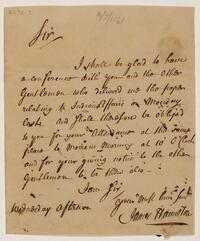 Sir
I shall be glad to have
a conference with you and the other
Gentlemen who delivered me the paper
relating to Indian Affairs on Monday
last, and shall therefore be obliged
to you for your Attendance at the same
place to Morrow Morning at 10 o'Clock
and for your giving notice to the other
Gentlemen to be there also
I am Sir
your most hum
James Hamilton
Wednesday Afternoon